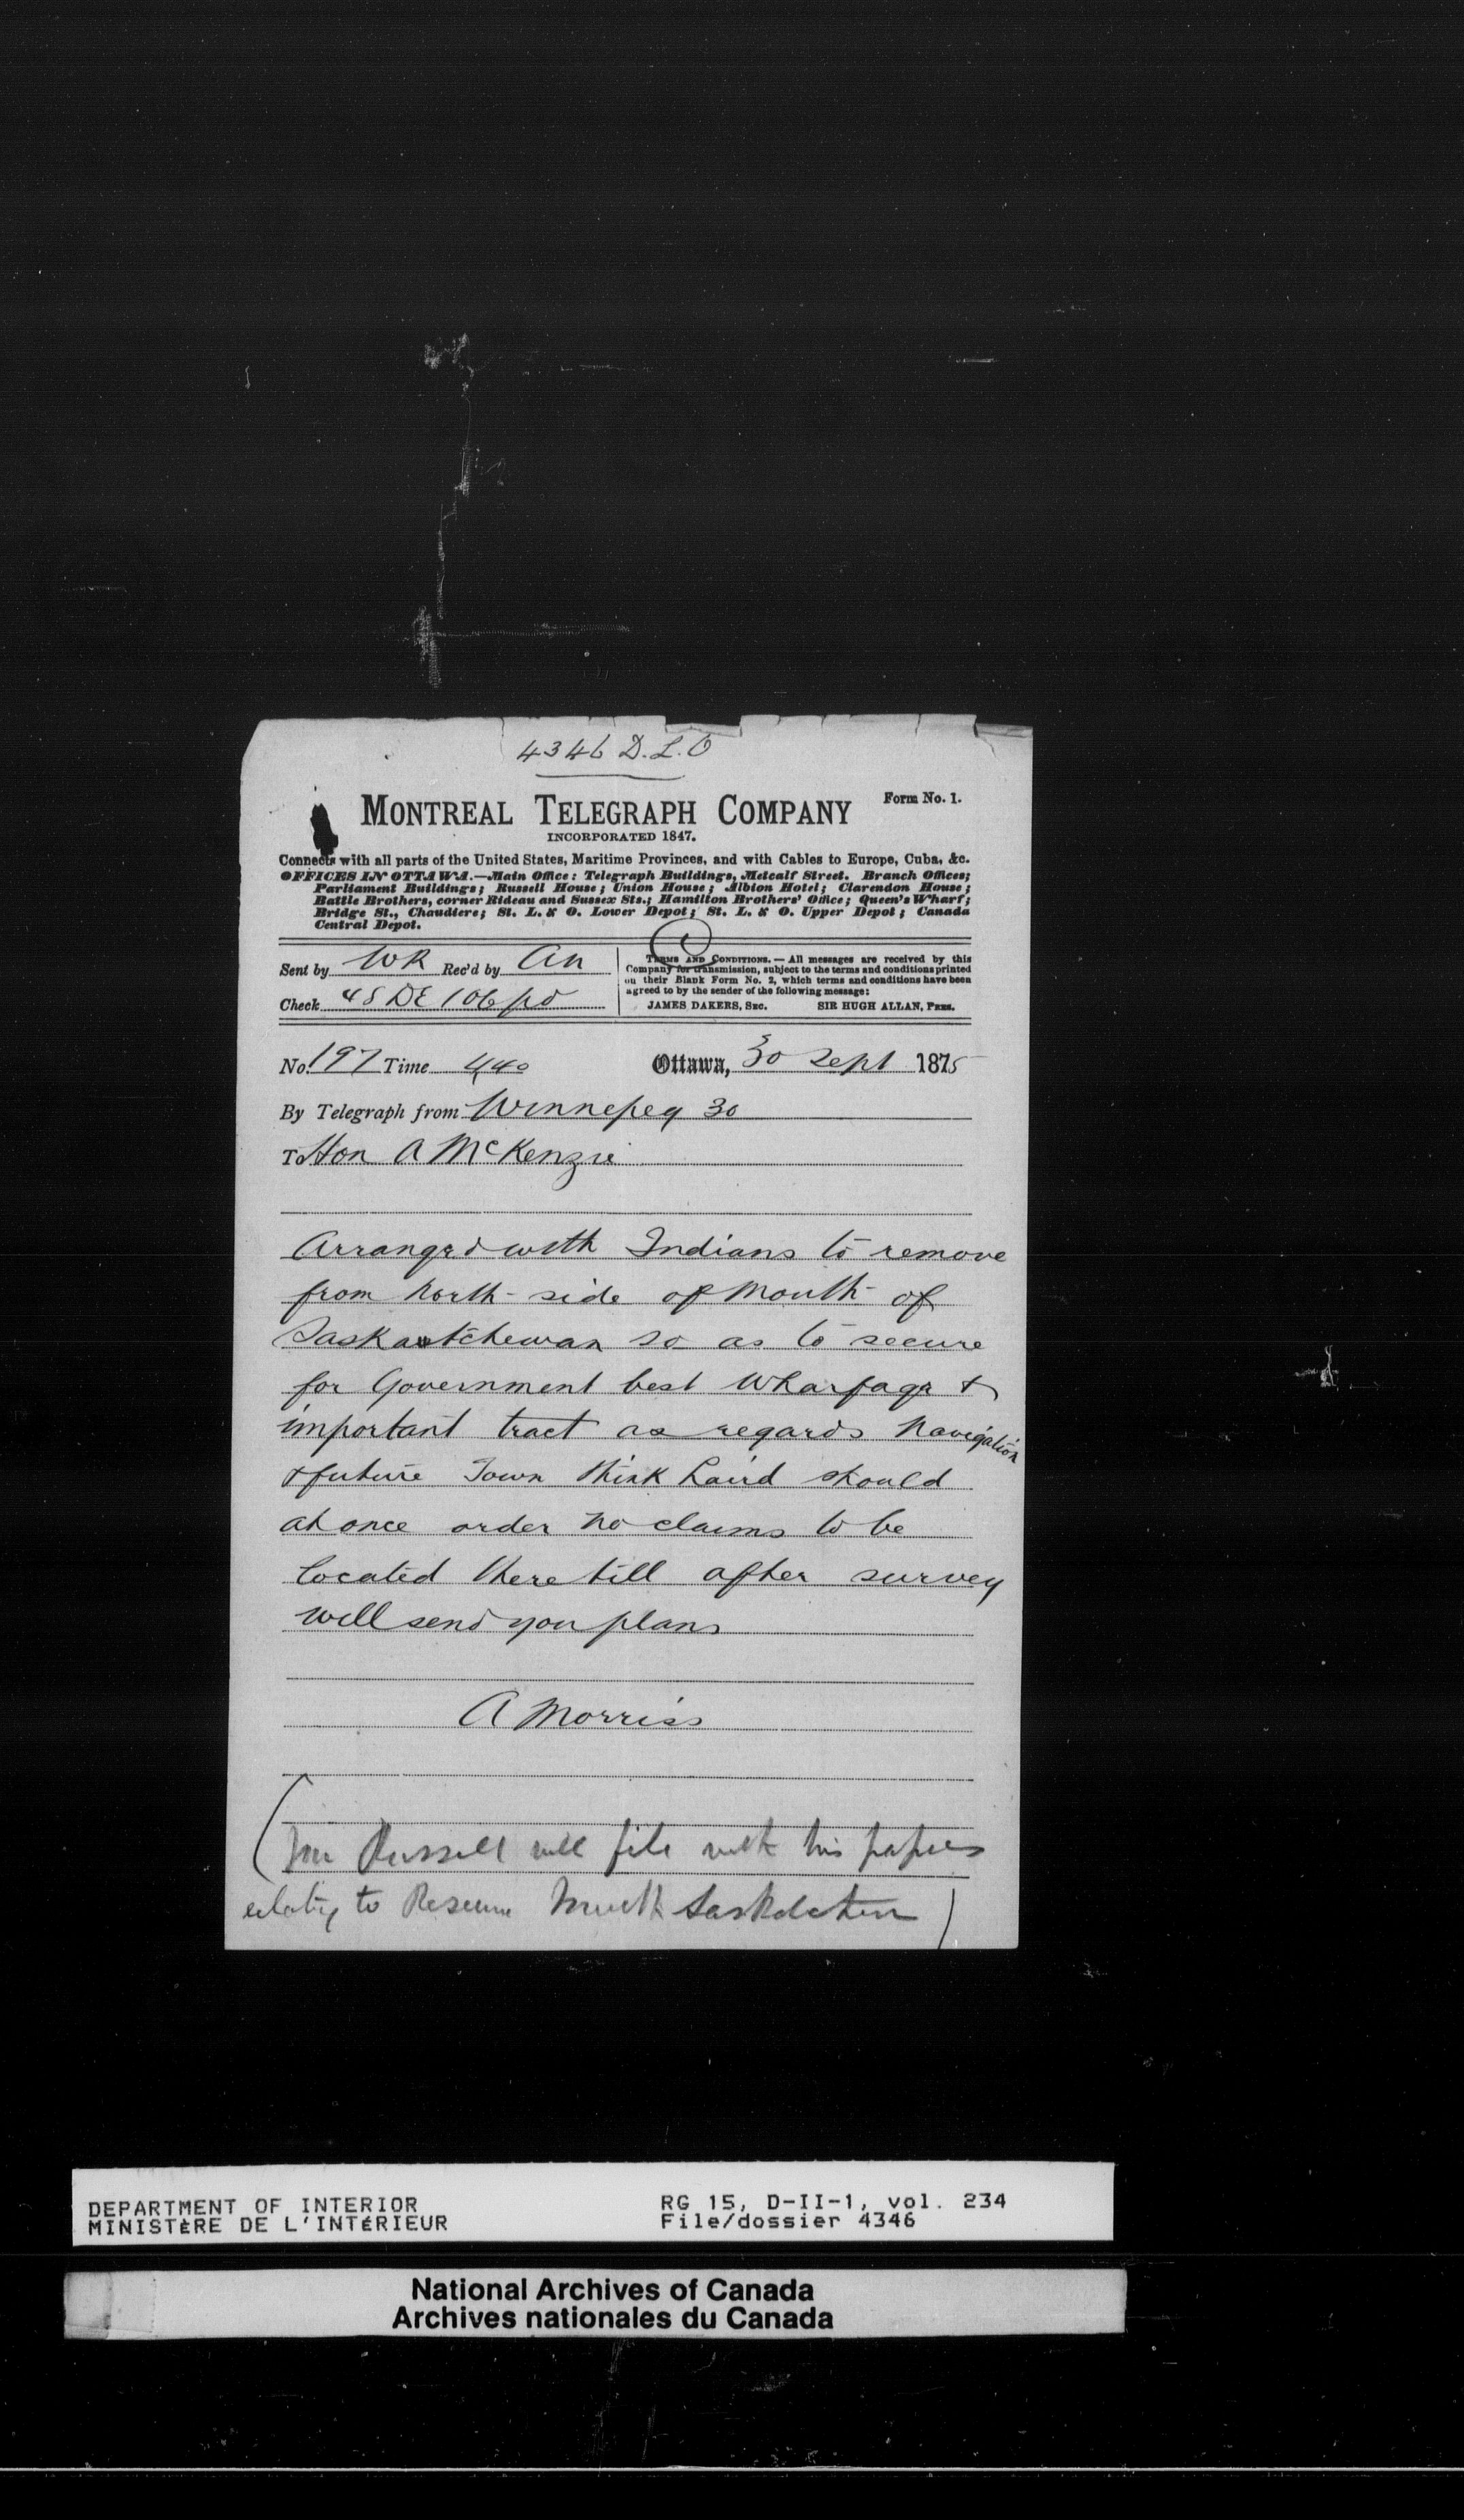 4346 D.L.O
MONTREAL TELEGRAPH COMPANY
Form No. 1.
INCORPORATED 1847.
Connects with all parts of the United States, Maritime Provinces, and with Cables to Europe, Cuba, &c.
OFFICES IN OTTAWA.—Main Office: Telegraph Buildings, Metcalf Street. Branch Offices;
Parliament Buildings; Russell House; Union House; Albion Hotel; Clarendon House;
Battle Brothers, corner Rideau and Sussex Sts.; Hamilton Brothers' Office; Queen's Wharf;
Bridge St., Chaudiere; St. L. & O. Lower Depot; St. L. & O. Upper Depot; Canada
Central Depot.
Sent by WR Rec'd by An
Check 48 DE 106 pd
TERMS AND CONDITIONS.—All messages are received by this
Company for transmission, subject to the terms and conditions printed
on their Blank Form No. 2, which terms and conditions have been
agreed to by the sender of the following message:
JAMES DAKERS, SEC. SIR HUGH ALLAN, PRES.
No. 197 Time 440 Ottawa, 30 Sept 1875
By Telegraph from Winnepeg 30
To Hon A McKenzie
Arranged with Indians to remove
from North side of Mouth of
Saskatchewan so as to secure
for Government best Wharfage &
important tract as regards Navigation
& future Town think Laird should
at once order no claims to be
located there till after survey
will send you plans
A Morriss
(Mr Russell will file with his papers
relating to Reserve Mouth Saskatchewan)
DEPARTMENT OF INTERIOR
MINISTÈRE DE L'INTÉRIEUR
RG 15, D-II-1, vol. 234
File/dossier 4346
National Archives of Canada
Archives nationales du Canada